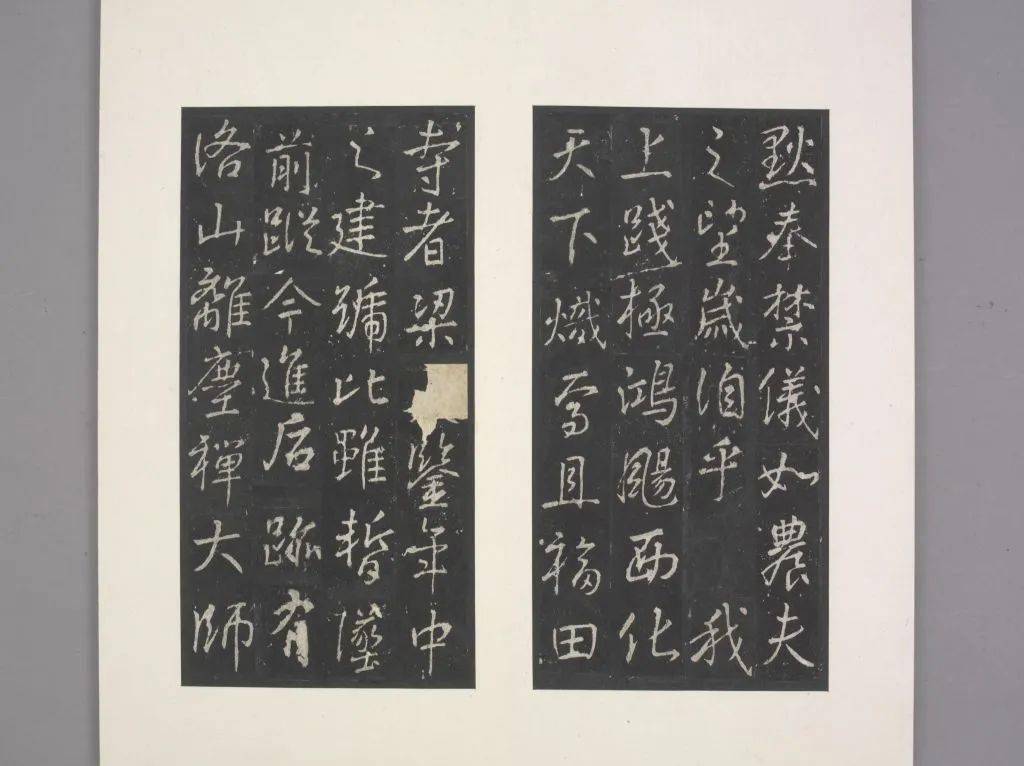 默奉禁儀如農夫
之望歲洎乎 我
上踐極鴻颺西化
天下熾焉且福田
寺者梁 鑒年中
之建號比雖暫墜
前蹤今進后跡有
洛山離塵禪大師